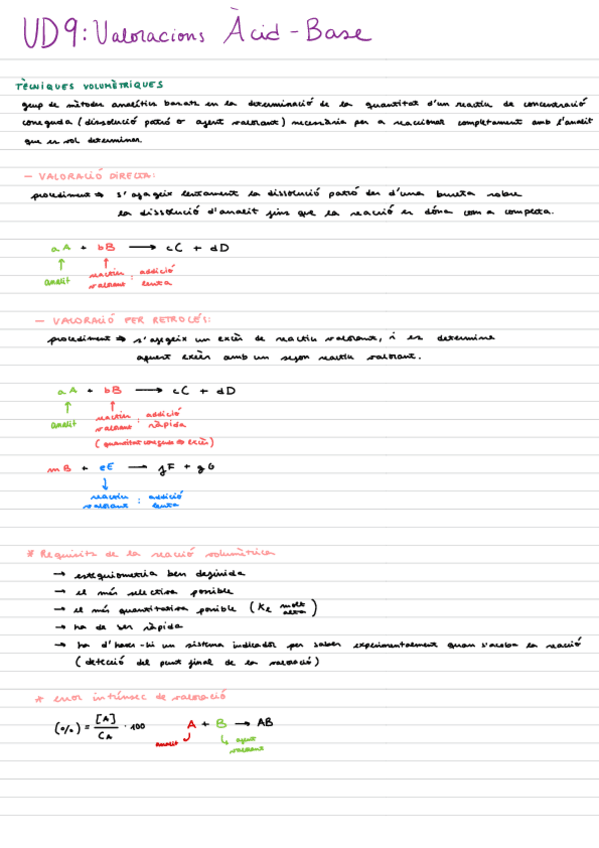 UD9: Valoracions Àcid-Base
TÈCNIQUES VOLUMÈTRIQUES
grup de mètodes analítics basats en la determinació de la quantitat d'un reactiu de concentració
coneguda (dissolució patró o agent valorant) necessària per a reaccionar completament amb l'analit
que es vol determinar.
- VALORACIÓ DIRECTA:
procediment → s'afegeix lentament la dissolució patró des d'una bureta sobre
la dissolució d'analit fins que la reacció es dóna com a completa.
aA + bB → cC + dD
↑ ↑
analit reactiu valorant : addició lenta
- VALORACIÓ PER RETROCÉS:
procediment → s'afegeix un excés de reactiu valorant, i es determina
aquest excés amb un segon reactiu valorant.
aA + bB → cC + dD
↑ ↑
analit reactiu valorant : addició ràpida
(quantitat coneguda → excés)
mB + eE → fF + gG
↓
reactiu valorant : addició lenta
* Requisits de la reacció volumètrica
→ estequiometria ben definida
→ el més selectiva possible
→ el més quantitativa possible (Ke molt alta)
→ ha de ser ràpida
→ ha d'haver-hi un sistema indicador per saber experimentalment quan s'acaba la reacció
(detecció del punt final de la valoració)
* error intrínsec de valoració
(%) = [A]/CA · 100 A + B → AB
analit agent valorant